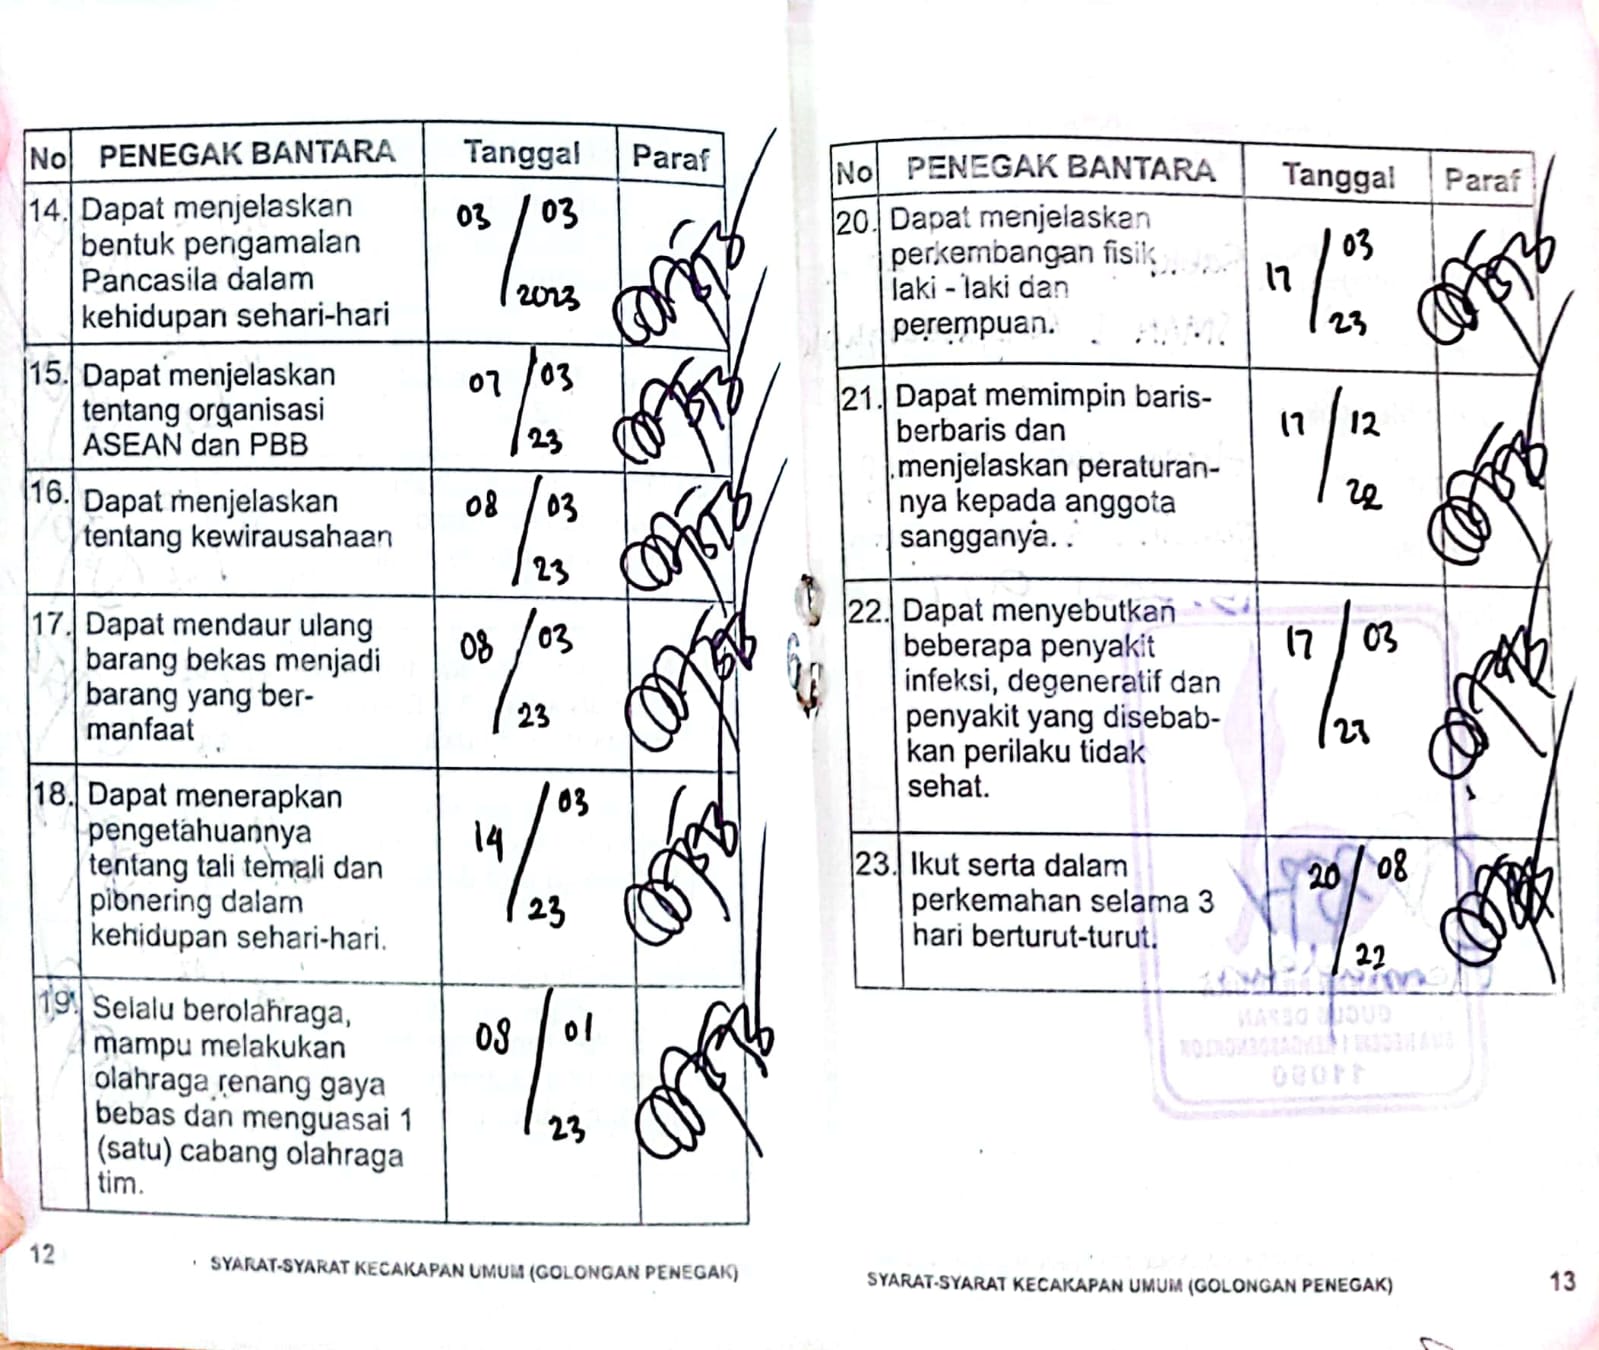 No PENEGAK BANTARA Tanggal Paraf
14. Dapat menjelaskan 03 / 03
bentuk pengamalan
Pancasila dalam 2023
kehidupan sehari-hari
15. Dapat menjelaskan 07 / 03
tentang organisasi
ASEAN dan PBB 23
16. Dapat menjelaskan 08 / 03
tentang kewirausahaan
23
17. Dapat mendaur ulang 08 / 03
barang bekas menjadi
barang yang ber- 23
manfaat
18. Dapat menerapkan 03
pengetahuannya 14 /
tentang tali temali dan
pionering dalam 23
kehidupan sehari-hari.
19. Selalu berolahraga, 08 / 01
mampu melakukan
olahraga renang gaya
bebas dan menguasai 1 23
(satu) cabang olahraga
tim.
12 SYARAT-SYARAT KECAKAPAN UMUM (GOLONGAN PENEGAK)
No PENEGAK BANTARA Tanggal Paraf
20. Dapat menjelaskan
perkembangan fisik 17 / 03
laki - laki dan
perempuan. 23
21. Dapat memimpin baris- 17 / 12
berbaris dan
menjelaskan peraturan-
nya kepada anggota 22
sangganya.
22. Dapat menyebutkan
beberapa penyakit 17 / 03
infeksi, degeneratif dan
penyakit yang disebab- 23
kan perilaku tidak
sehat.
23. Ikut serta dalam 20 / 08
perkemahan selama 3
hari berturut-turut. 22
SYARAT-SYARAT KECAKAPAN UMUM (GOLONGAN PENEGAK) 13